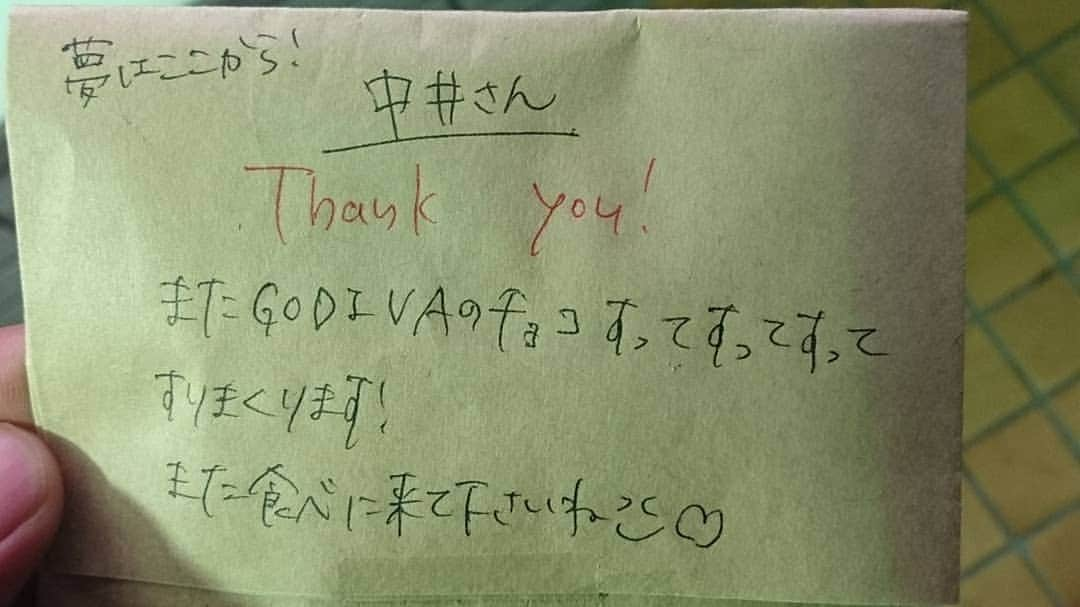 夢はここから!
中井さん
Thank you!
またGODIVAのチョコすってすってすって
すりまくります!
また食べに来て下さいね♡